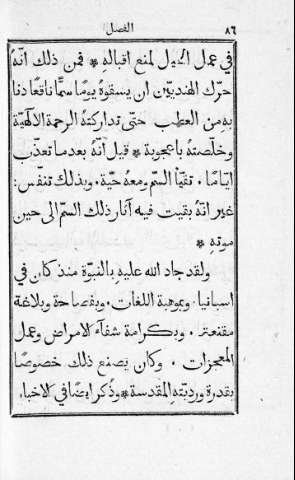 الفصل ٨٦
في عمل الحيل لمنع اقباله * فمن ذلك انه
حرّك الهنديّين ان يسقوهُ يومًا سمًّا ناقعًا دنا
به من العطب ، حتى تداركتهُ الرحمة الالهيّة
وخلّصتهُ باعجوبة * قيل انّهُ بعد ما تعذّب
ايّامًا ، تقيّأ السّم ومعهُ حيّة ، وبذلك تنفّس :
غير انّهُ بقيت فيه آثار ذلك السّم الى حين
موته *
ولقد جاد الله عليهِ بالنبوّة منذ كان في
اسبانيا ، وبموهبة اللغات ، وبفصاحة وبلاغة
مقنعتين ، وبكرامة شفآء الامراض وعمل
المعجزات . وكان يصنع ذلك خصوصًا
بقدرة ورديّتهِ المقدسة * وذُكر ايضًا في لاخبار